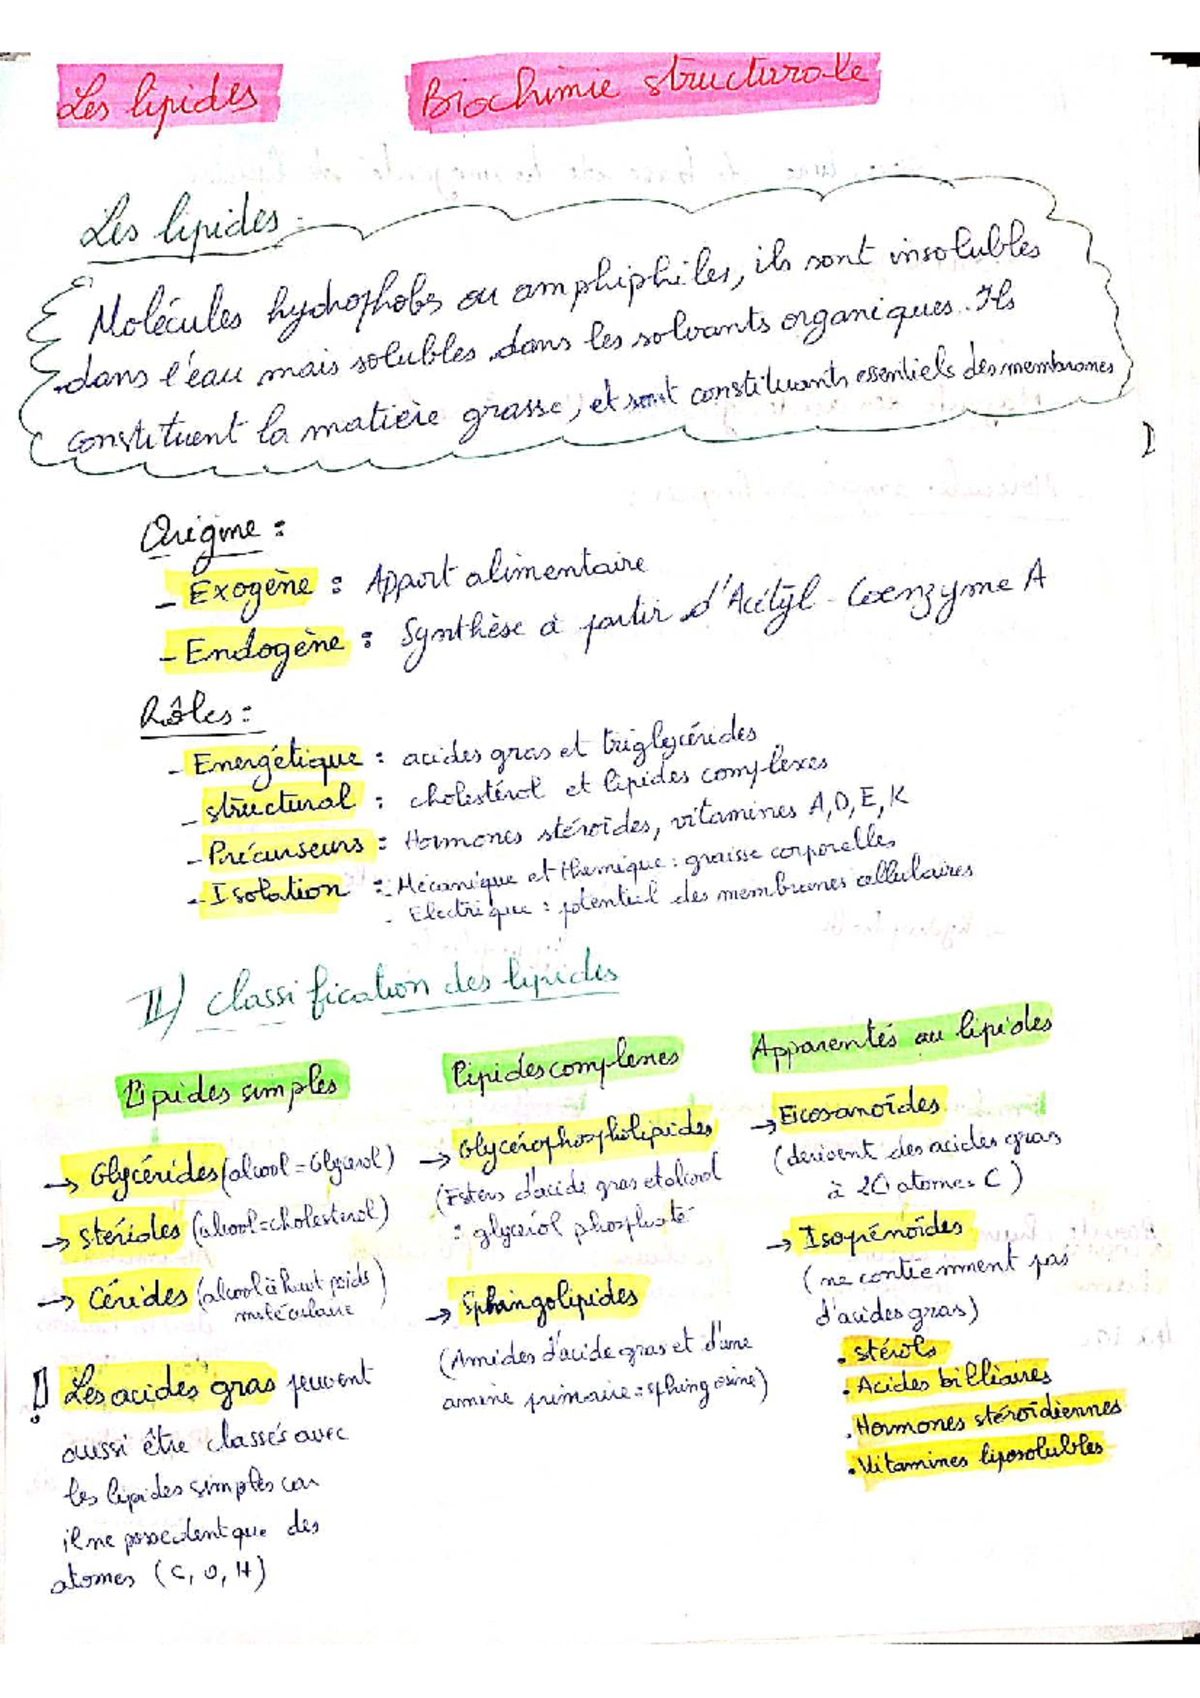 Les lipides
Biochimie structurale
Les lipides :
Molécules hydrophobs ou amphiphiles, ils sont insolubles
dans l'eau mais solubles dans les solvants organiques. Ils
constituent la matière grasse, et sont constituants essentiels des membranes
Origine :
- Exogène : Apport alimentaire
- Endogène : Synthèse à partir d'Acétyl-Coenzyme A
Rôles :
- Energétique : acides gras et triglycérides
- structural : cholestérol et lipides complexes
- Précurseurs : Hormones stéroïdes, vitamines A, D, E, K
- Isolation : - Mécanique et thermique : graisse corporelles
- Electrique : potentiel des membranes cellulaires
II) classification des lipides
Lipides simples
→ Glycérides (alcool = Glycérol)
→ Stérides (alcool = cholesterol)
→ Cérides (alcool à haut poids
moléculaire)
!! Les acides gras peuvent
aussi être classés avec
les lipides simples car
il ne possedent que des
atomes (C, O, H)
Lipides complexes
→ Glycérophospholipides
(Esters d'acide gras et alcool
: glycérol phosphaté
→ Sphingolipides
(Amides d'acide gras et d'une
amine primaire : sphingosine)
Apparentés au lipides
→ Eicosanoïdes
(derivent des acides gras
à 20 atomes C)
→ Isoprénoïdes
(ne contiennent pas
d'acides gras)
. stérols
. Acides billiaires
. Hormones stéroïdiennes
. Vitamines liposolubles